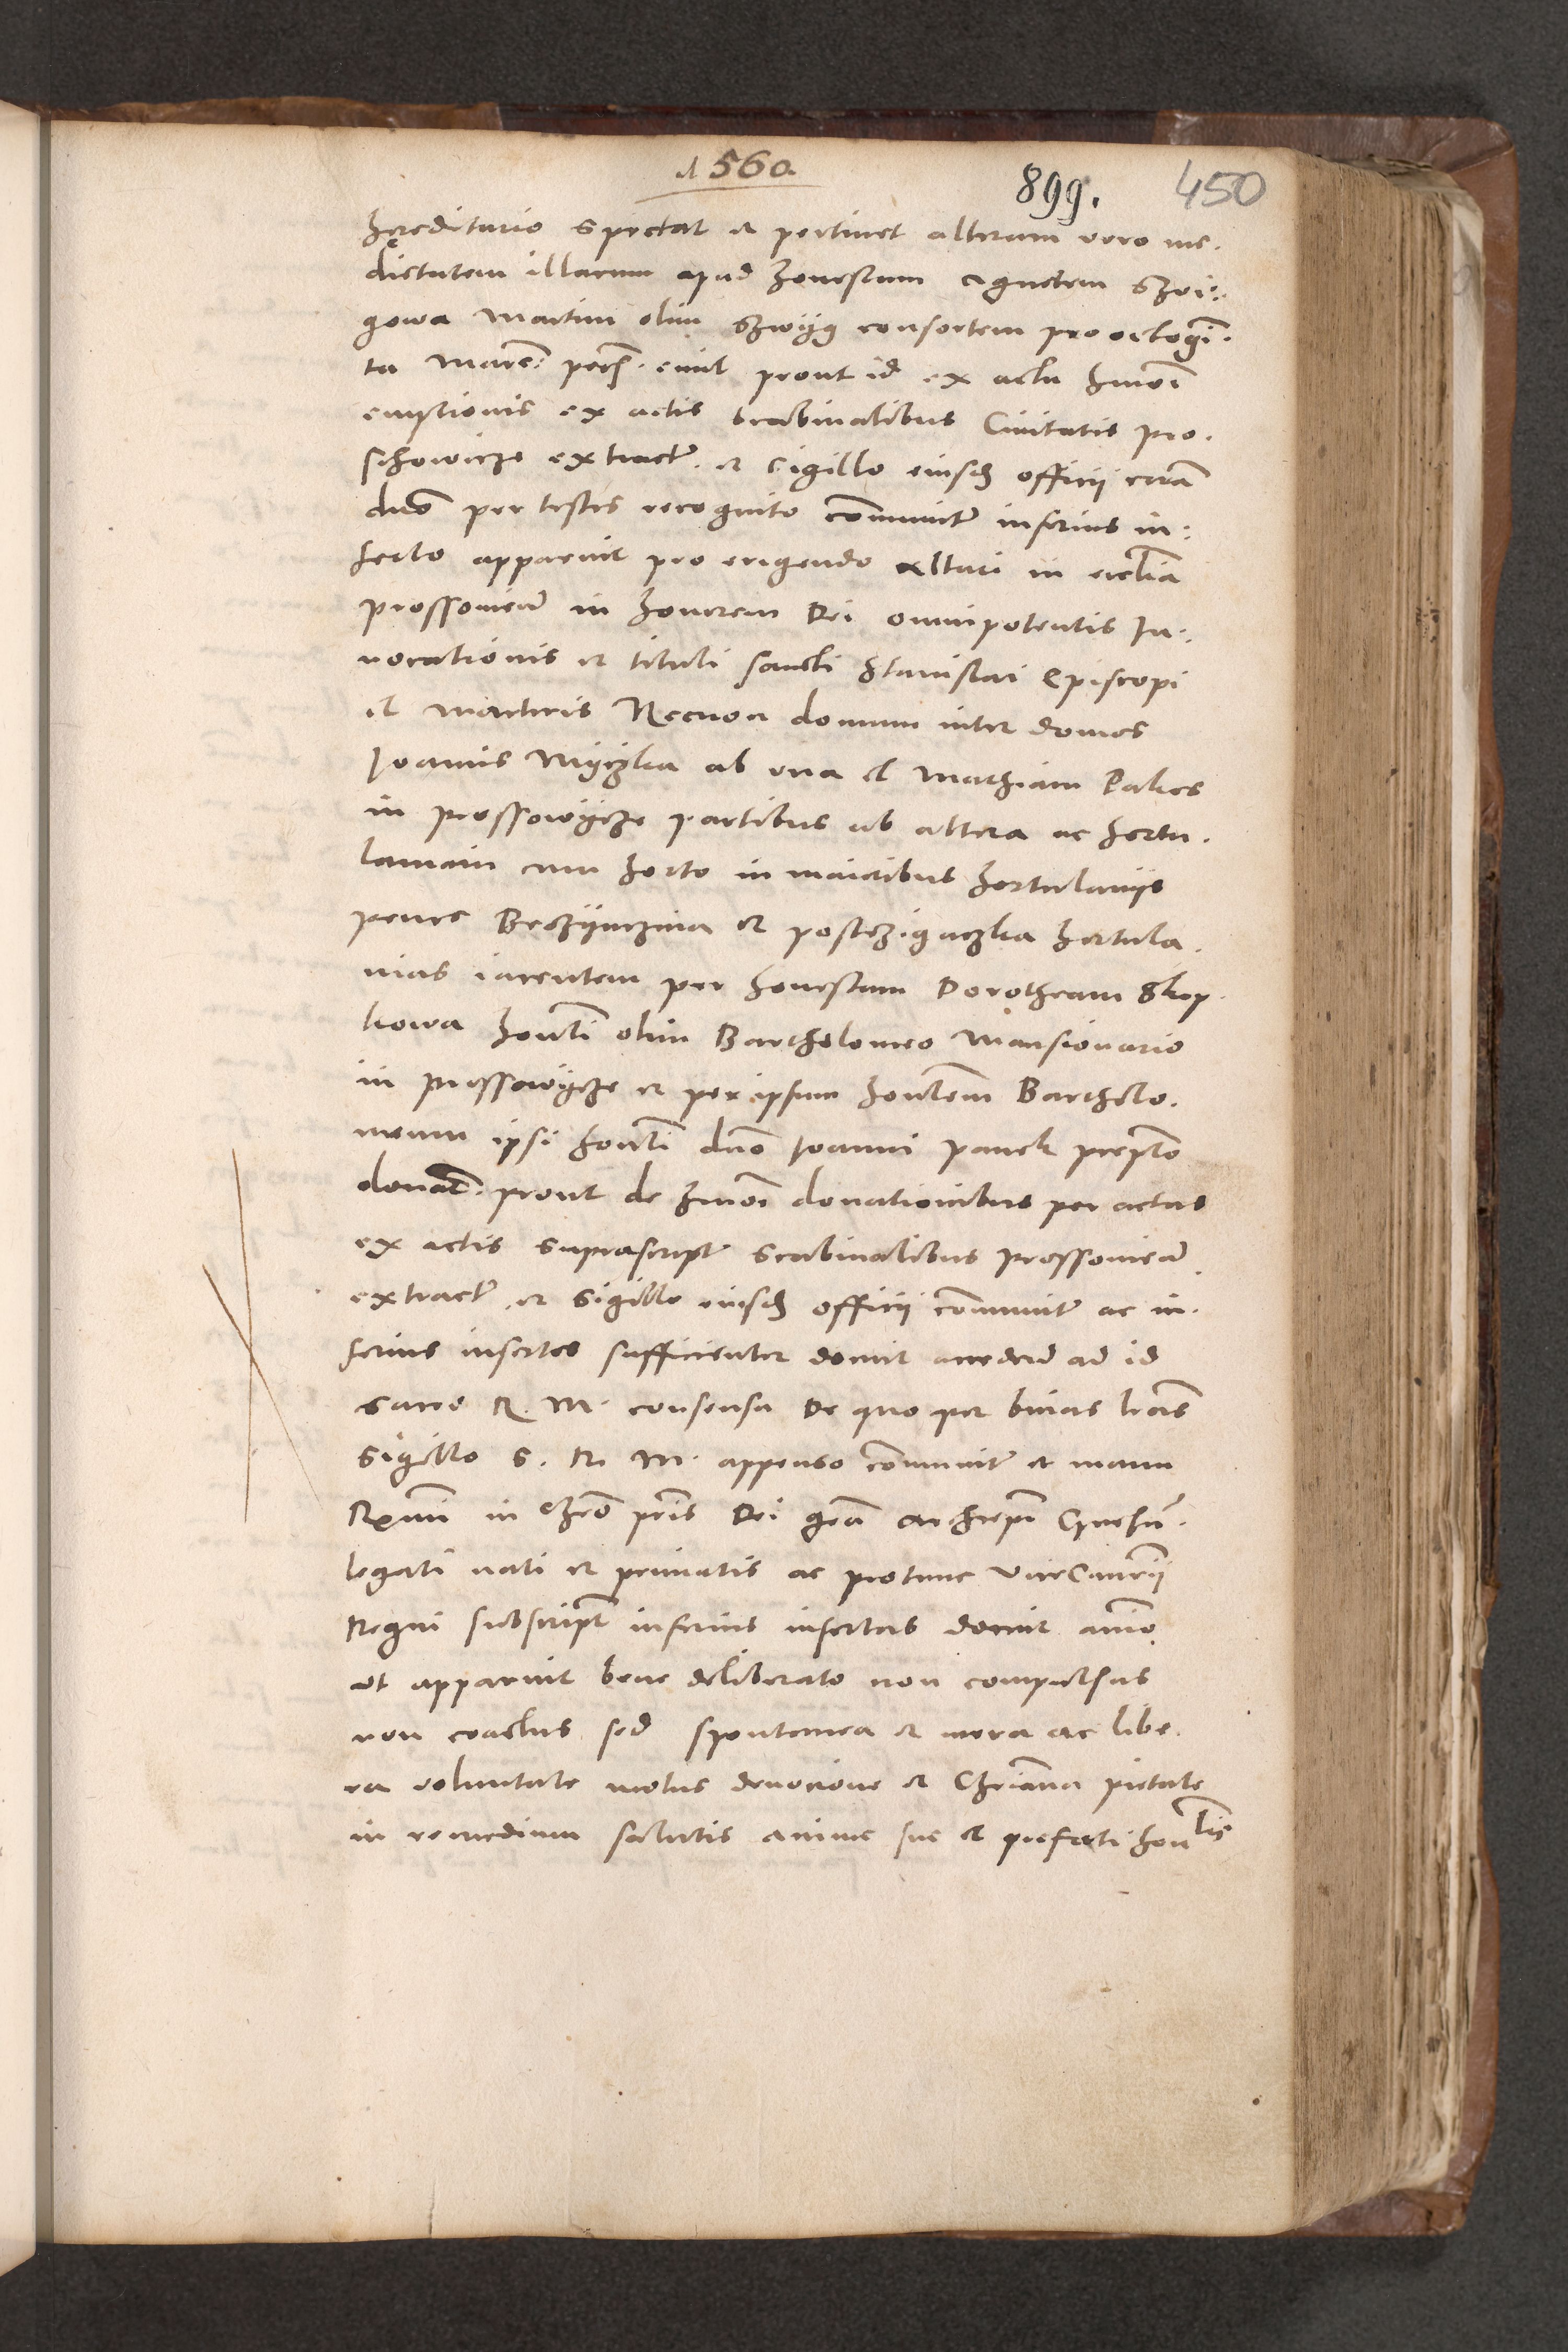 1560
899. 450
hęreditario spectat et pertinet alteram vero me-
dietatem illarum apud honestam Agnetem Szwi-
gowa Martini olim Szwyg consortem pro octogin̄-
ta Marc: pecū. emit prout id ex actu hmōi
emptionis ex actis scabinalibus Civitatis Pro-
schowicze extract. et sigillo eiusd officii corā
dnō per testes recognito cōmunit inferius in-
serto apparuit pro erigendo Altari in ecclīa
prossovień in honorem Dei omnipotentis In-
vocationis et tituli sancti Stanislai Episcopi
et martiris Necnon domum inter domos
Ioannis Myczka ab una et Mathiam Palies
in prossowycze partibus ab altera ac hortu-
laniam cum horto in maioribus hortulaniis
penes Beczynczina et postrzigaczka hortula-
nias iacentem per honestam Dorotheam Skop-
kowa honti olim Bartholomeo Mansionario
in prossowycze et per ipsum hontem Bartholo-
meum ipsi honti dnō Ioanni panek preptō
donat. prout de hmōi donationibus per actas
ex actis suprascript scabinalibus prossovień
extract et sigillo eiusd officii cōmunit ac in-
ferius insertos sufficienter docuit acceden ad id
sacro R. M. consensu De quo per binas lrās
sigillo S. R. M. appenso cōmunit et manu
Rximi in Chrō pris Dei grā archiepi Gnesn̄.
legati nati et primatis ac protunc ViceCancrii
Regni subscript inferius insertas docuit animo
ut apparuit bene deliberato non compulsus
non coactus sed spontanea et mera ac libe-
ra voluntate motus devocione et Chrīana pietate
in remedium salutis anime sue et prefati hontis